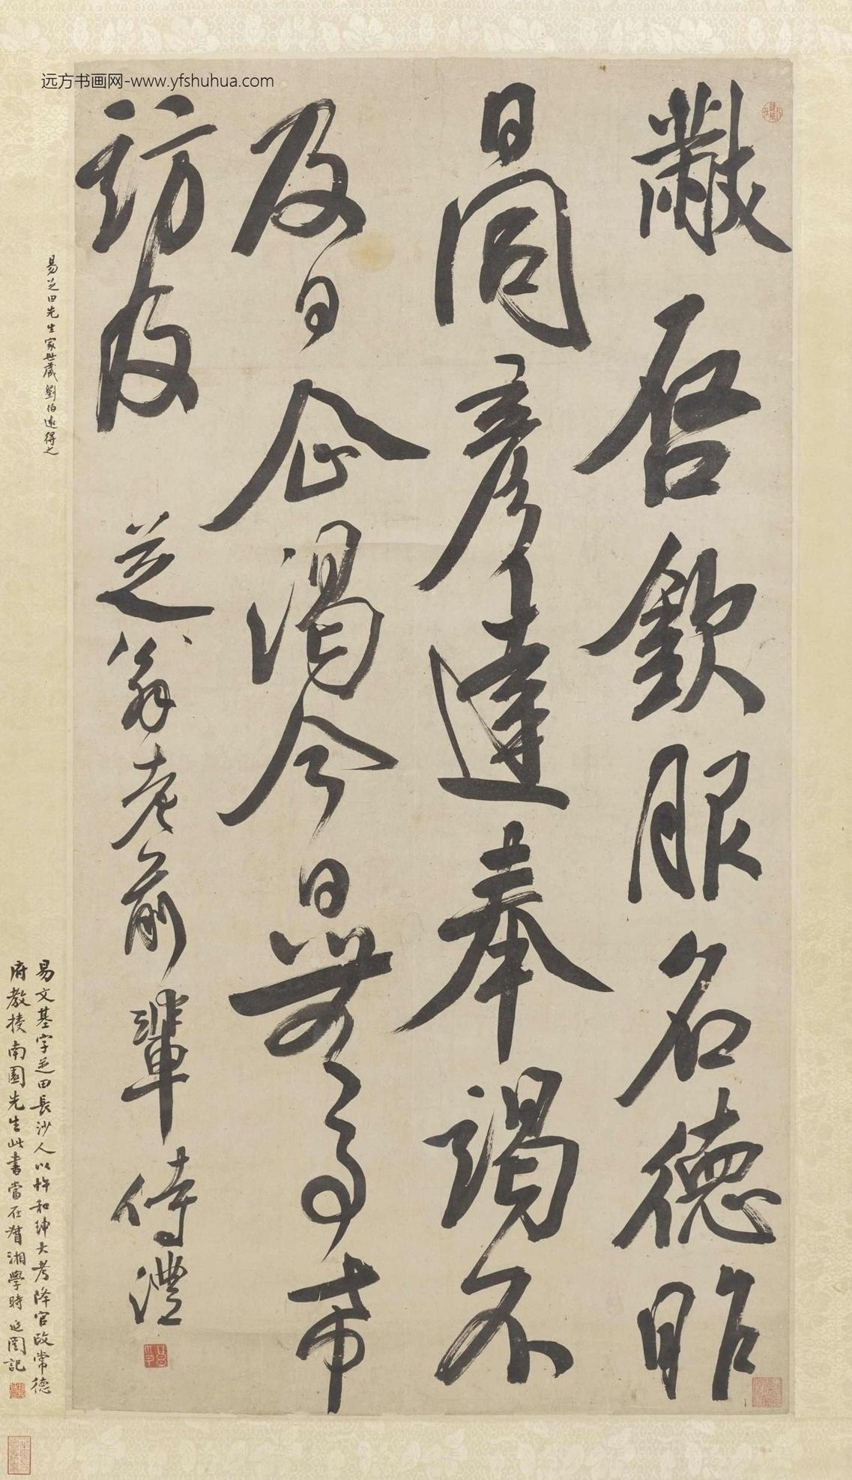 远方书画网-www.yfshuhua.com
黻启欽服名德昨
日同彦達奉謁不
及日企渴今日無事希
訪及
芝翁老前輩 侍灃
易芝田先生家世藏劉伯遠得之
易文基字芝田長沙人以忤和珅大考降官改常德
府教授南園先生此書當在督湘學時 記